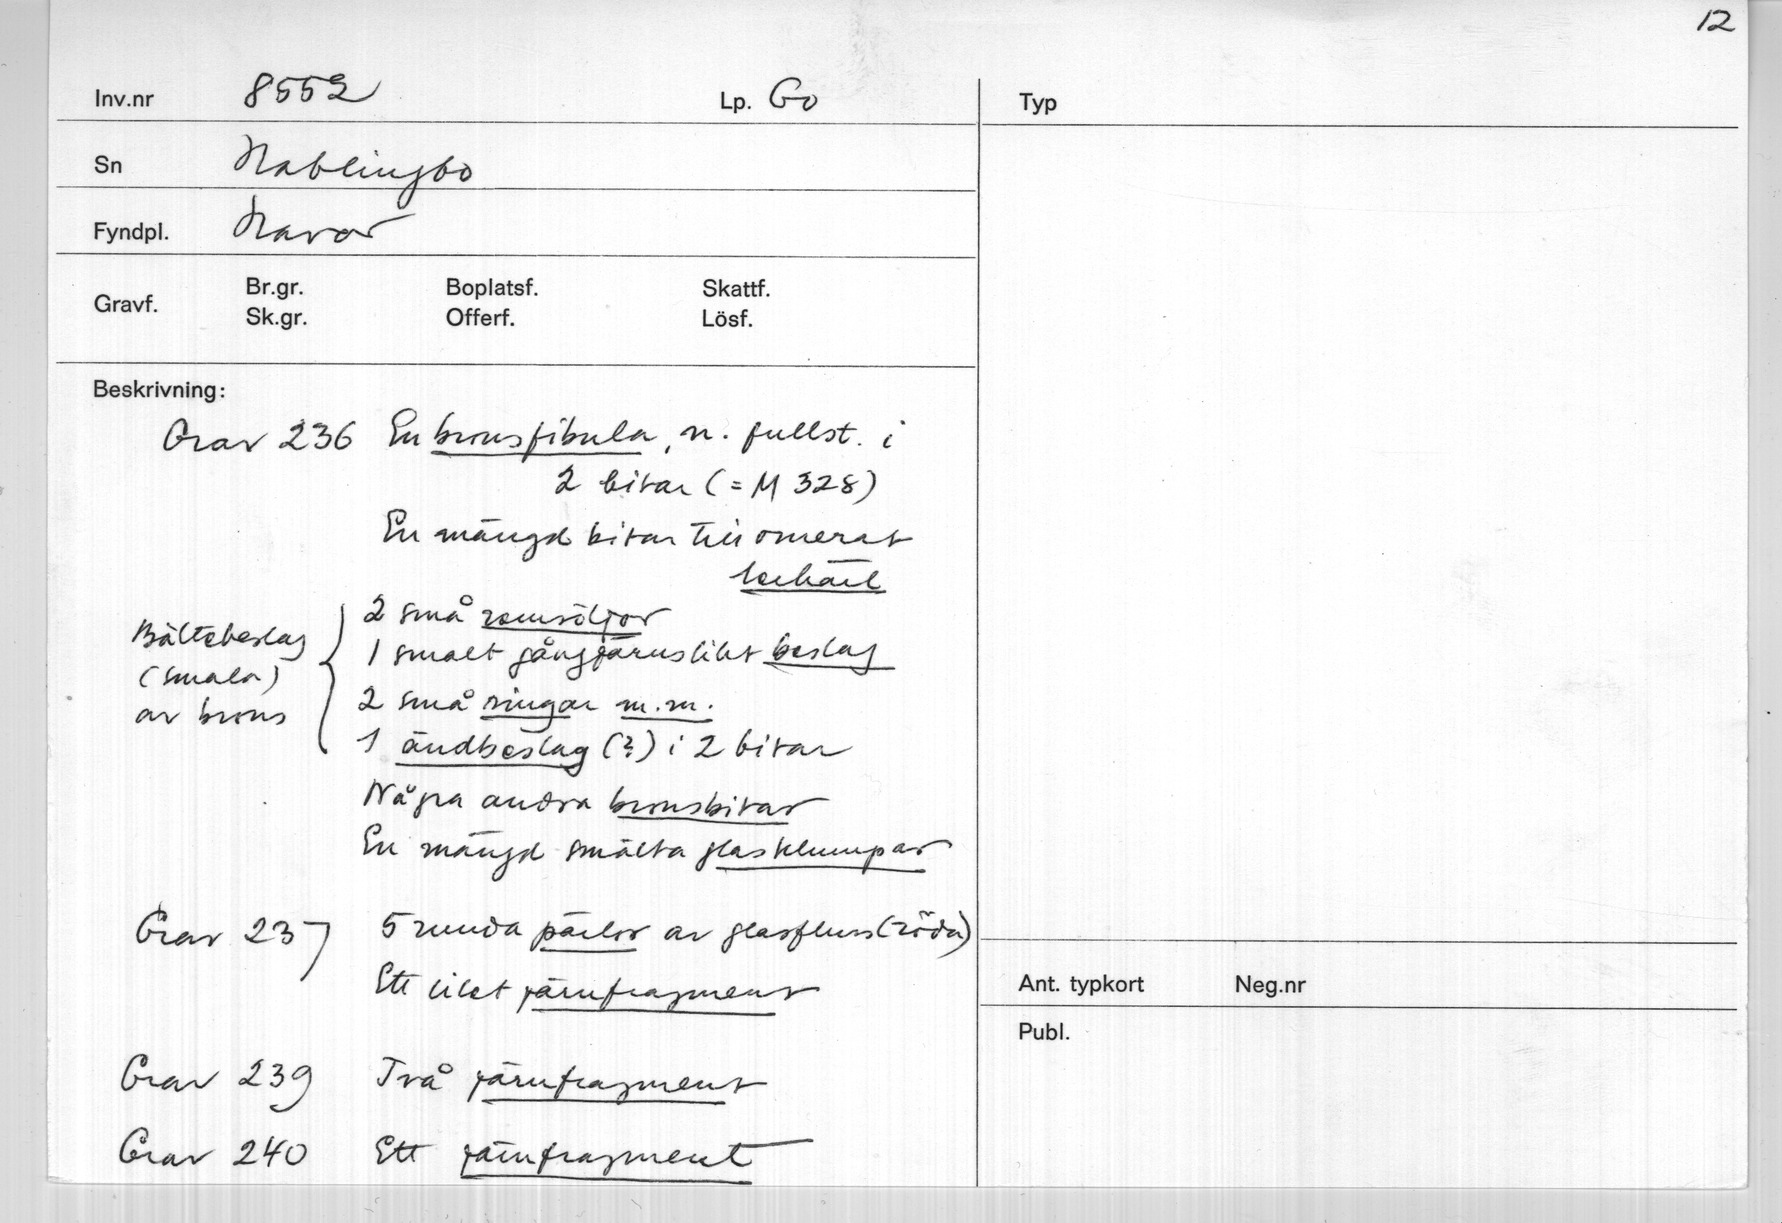 12
Inv.nr 8552 Lp. Go
Sn Hablingbo
Fyndpl. Havor
Gravf. Br.gr. Boplatsf. Skattf.
Sk.gr. Offerf. Lösf.
Beskrivning:
Grav 236 En bronsfibula, n. fullst. i
2 bitar (= M 328)
En mängd bitar till omerat
lerkärl
Bältebeslag
(smala)
av brons
2 små remsöljor
1 smalt gångjärnslikt beslag
2 små ringar m.m.
1 ändbeslag (?) i 2 bitar
Några andra bronsbitar
En mängd smälta glasklumpar
Grav 237 5 runda pärlor av glasfluss (röda)
Ett litet järnfragment
Grav 239 Två järnfragment
Grav 240 Ett järnfragment
Typ
Ant. typkort Neg.nr
Publ.